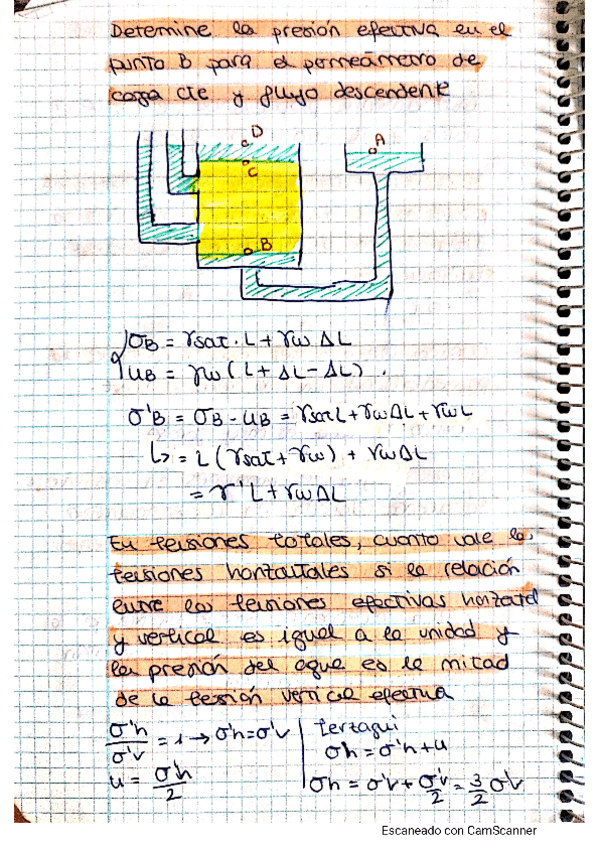 Determine la presión efectiva en el
punto B para el permeámetro de
carga cte y flujo descendente
D
A
C
B
σB = γsat · L + γω ΔL
uB = γω (L + ΔL - ΔL) .
σ'B = σB - uB = γsat L + γω ΔL + γω L
↳ = L (γsat + γω) + γω ΔL
= γ' L + γω ΔL
En tensiones totales, cuanto vale las
tensiones horizontales si la relación
entre las tensiones efectivas horizontal
y vertical es igual a la unidad y
la presión del agua es la mitad
de la tensión vertical efectiva
σ'h/σ'v = 1 → σ'h = σ'v
u = σ'h/2
Terzagui
σh = σ'h + u
σh = σ'v + σ'v/2 = 3/2 σ'v
Escaneado con CamScanner